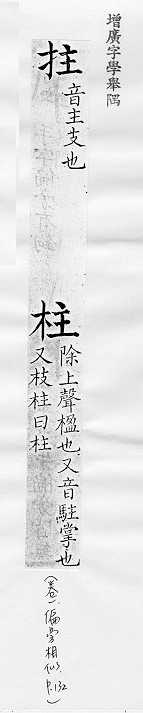 增廣字學舉隅
拄 音主支也
柱 除上聲楹也又音駐掌也
又枝柱曰柱
(卷一.偏旁相似.P.132)